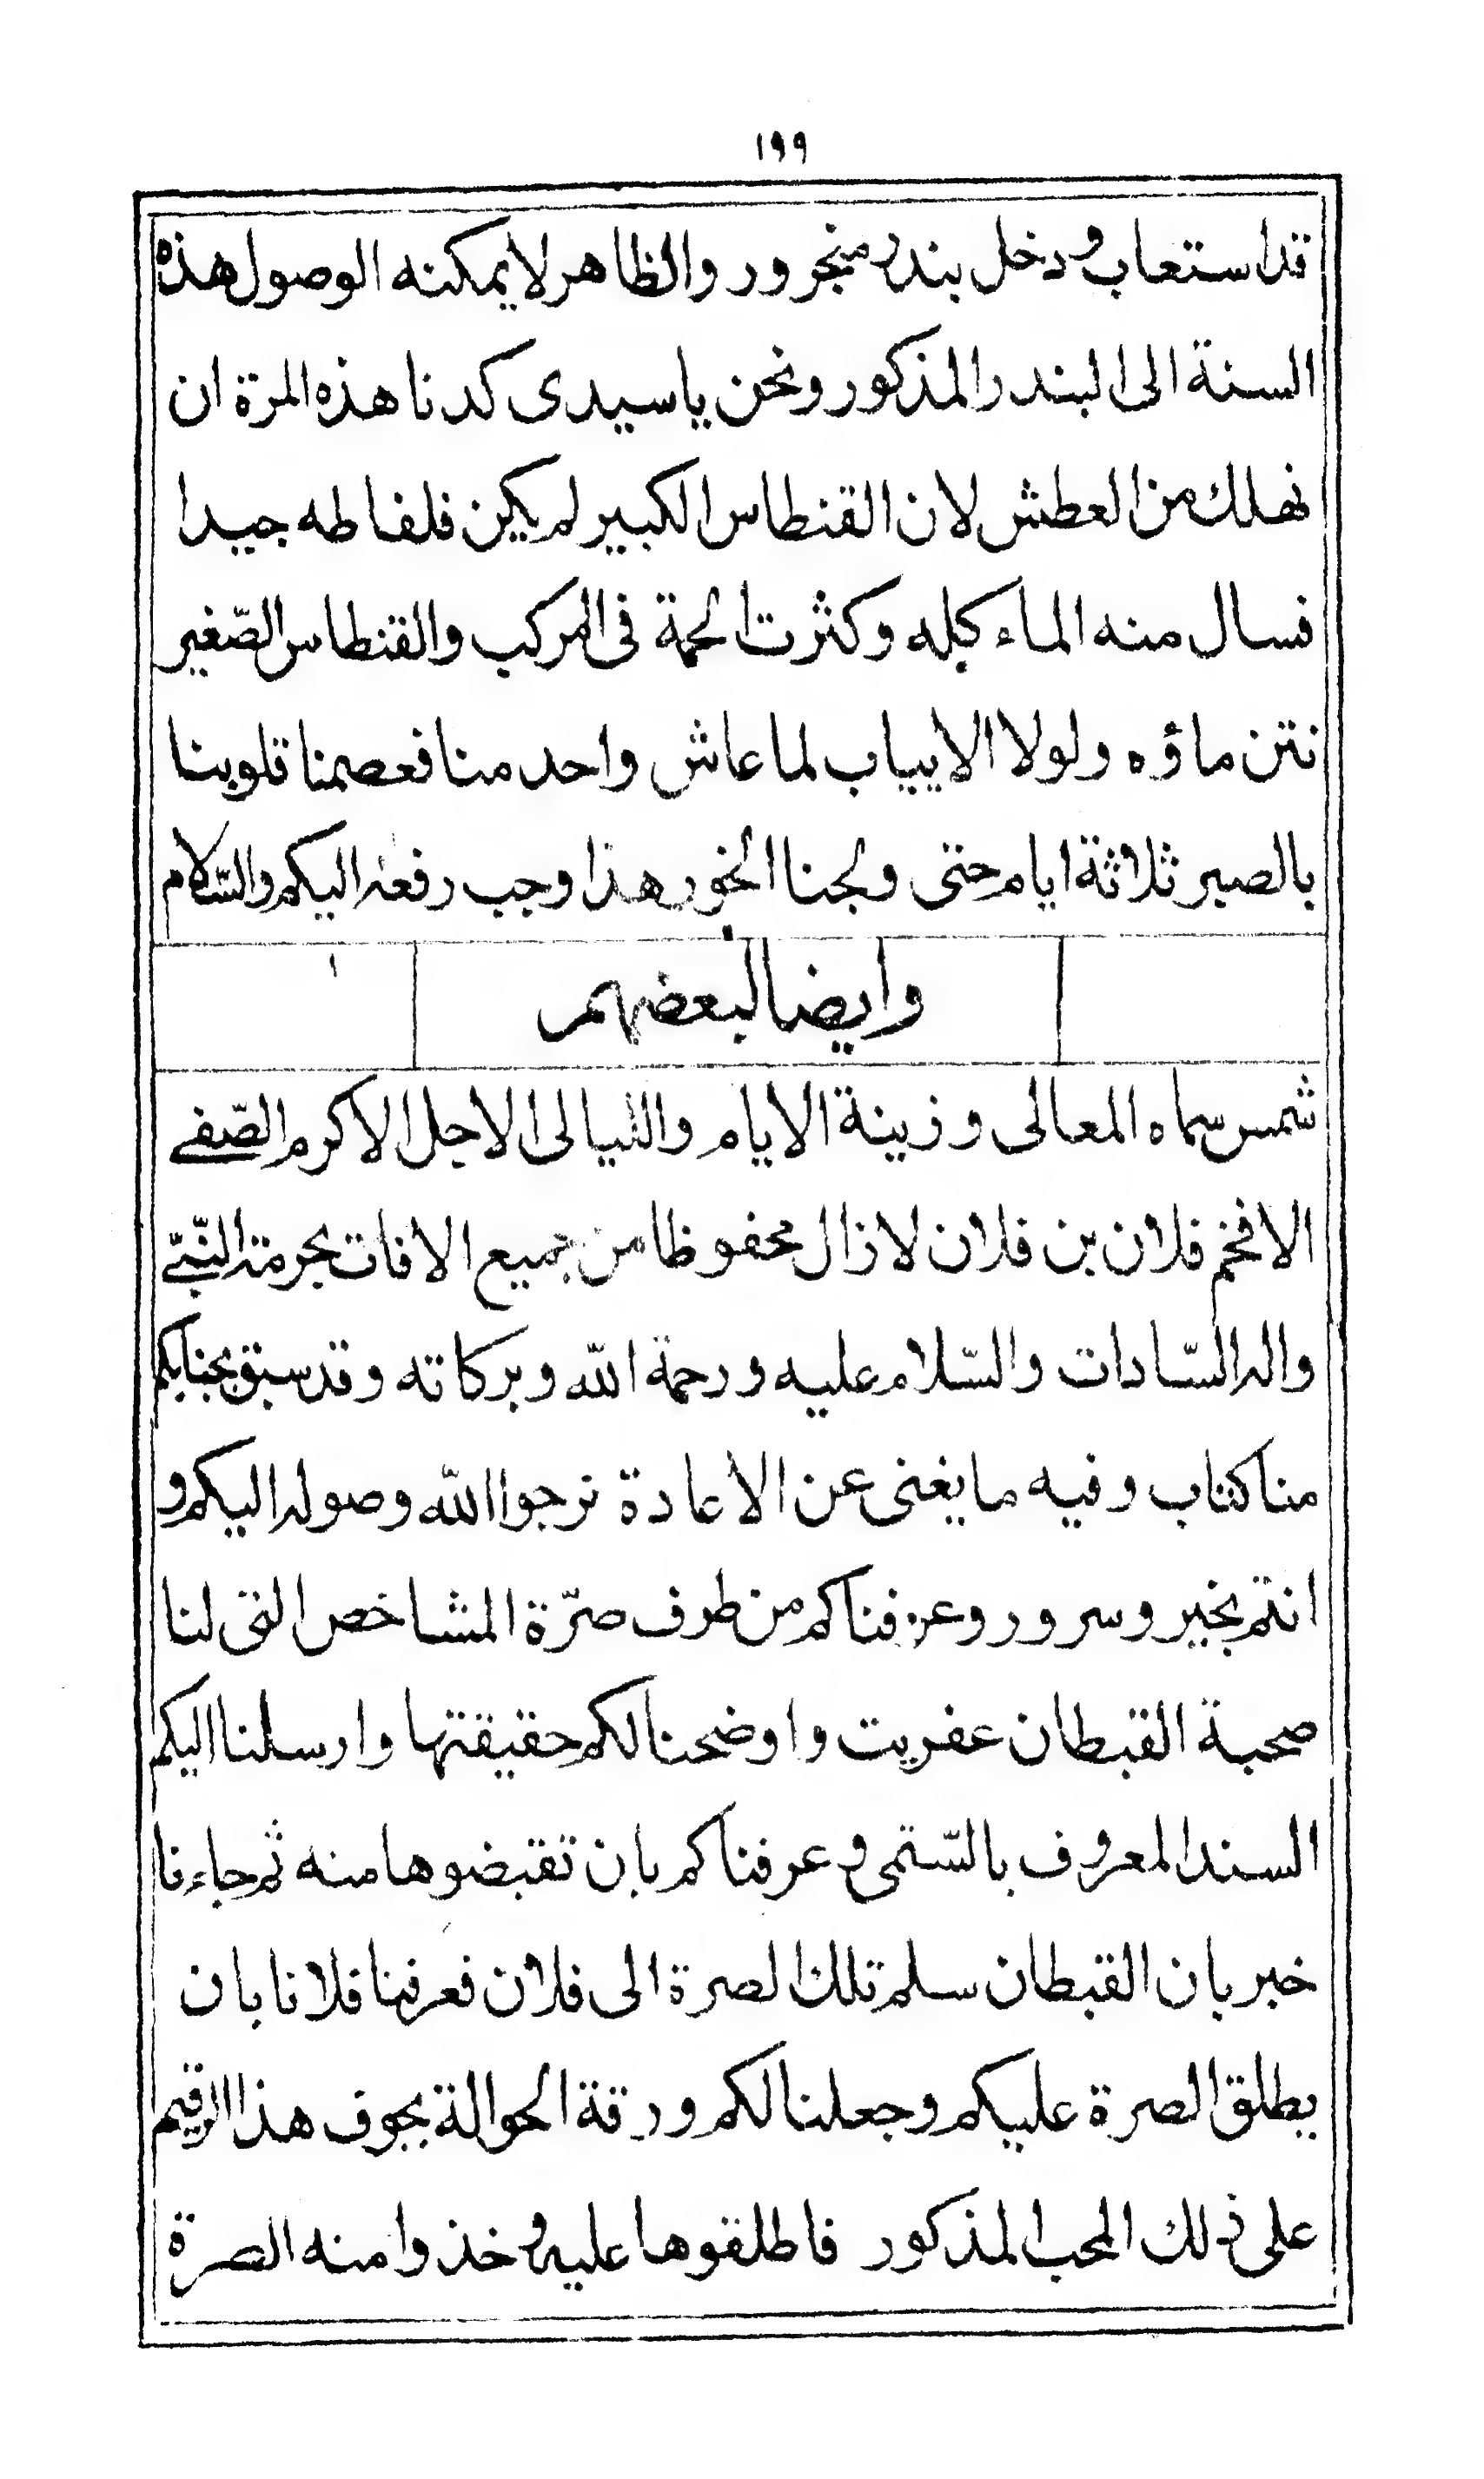 ١٩٩
قد استعاب ودخل بندر منجرور والظاهر لا يمكنه الوصول هذه
السنة الى البندر المذكور ونحن يا سيدى كدنا هذه المرة ان
نهلك من العطش لان القنطاس الكبير لم يكن فلفاطه جيدا
فسال منه الماء كله وكثرت الحمة فى المركب والقنطاس الصّغير
نتن ماؤه ولولا الايياب لما عاش واحد منا فعصمنا قلوبنا
بالصبر ثلاثة ايام حتى ولجنا الخور هذا وجب رفعه اليكم والسّلام
وايضا لبعضهم
شمس سماء المعالى وزينة الايام والليالى الاجل الاكرم الصّفے
الافخم فلان بن فلان لازال محفوظا من جميع الافات بحرمة النّبىّ
واله السّادات والسّلام عليه ورحمة اللّه وبركاته وقد سبق بجنابكم
منا كتاب وفيه ما يغنى عن الاعادة نرجوا اللّه وصوله اليكم و
انتم بخير وسرور وعرفناكم من طرف صرّة المشاخص التى لنا
صحبة القبطان عفريت واوضحنا لكم حقيقتها وارسلنا اليكم
السند المعروف بالسّتمى وعرفناكم بان تقبضوها منه ثم جاءنا
خبر بان القبطان سلم تلك الصرة الى فلان فعرفنا فلانا بان
يطلق الصرة عليكم وجعلنا لكم ورقة الحوالة بجوف هذا الرقيم
على ذلك المحب المذكور فاطلقوها عليه وخذوا منه الصرة